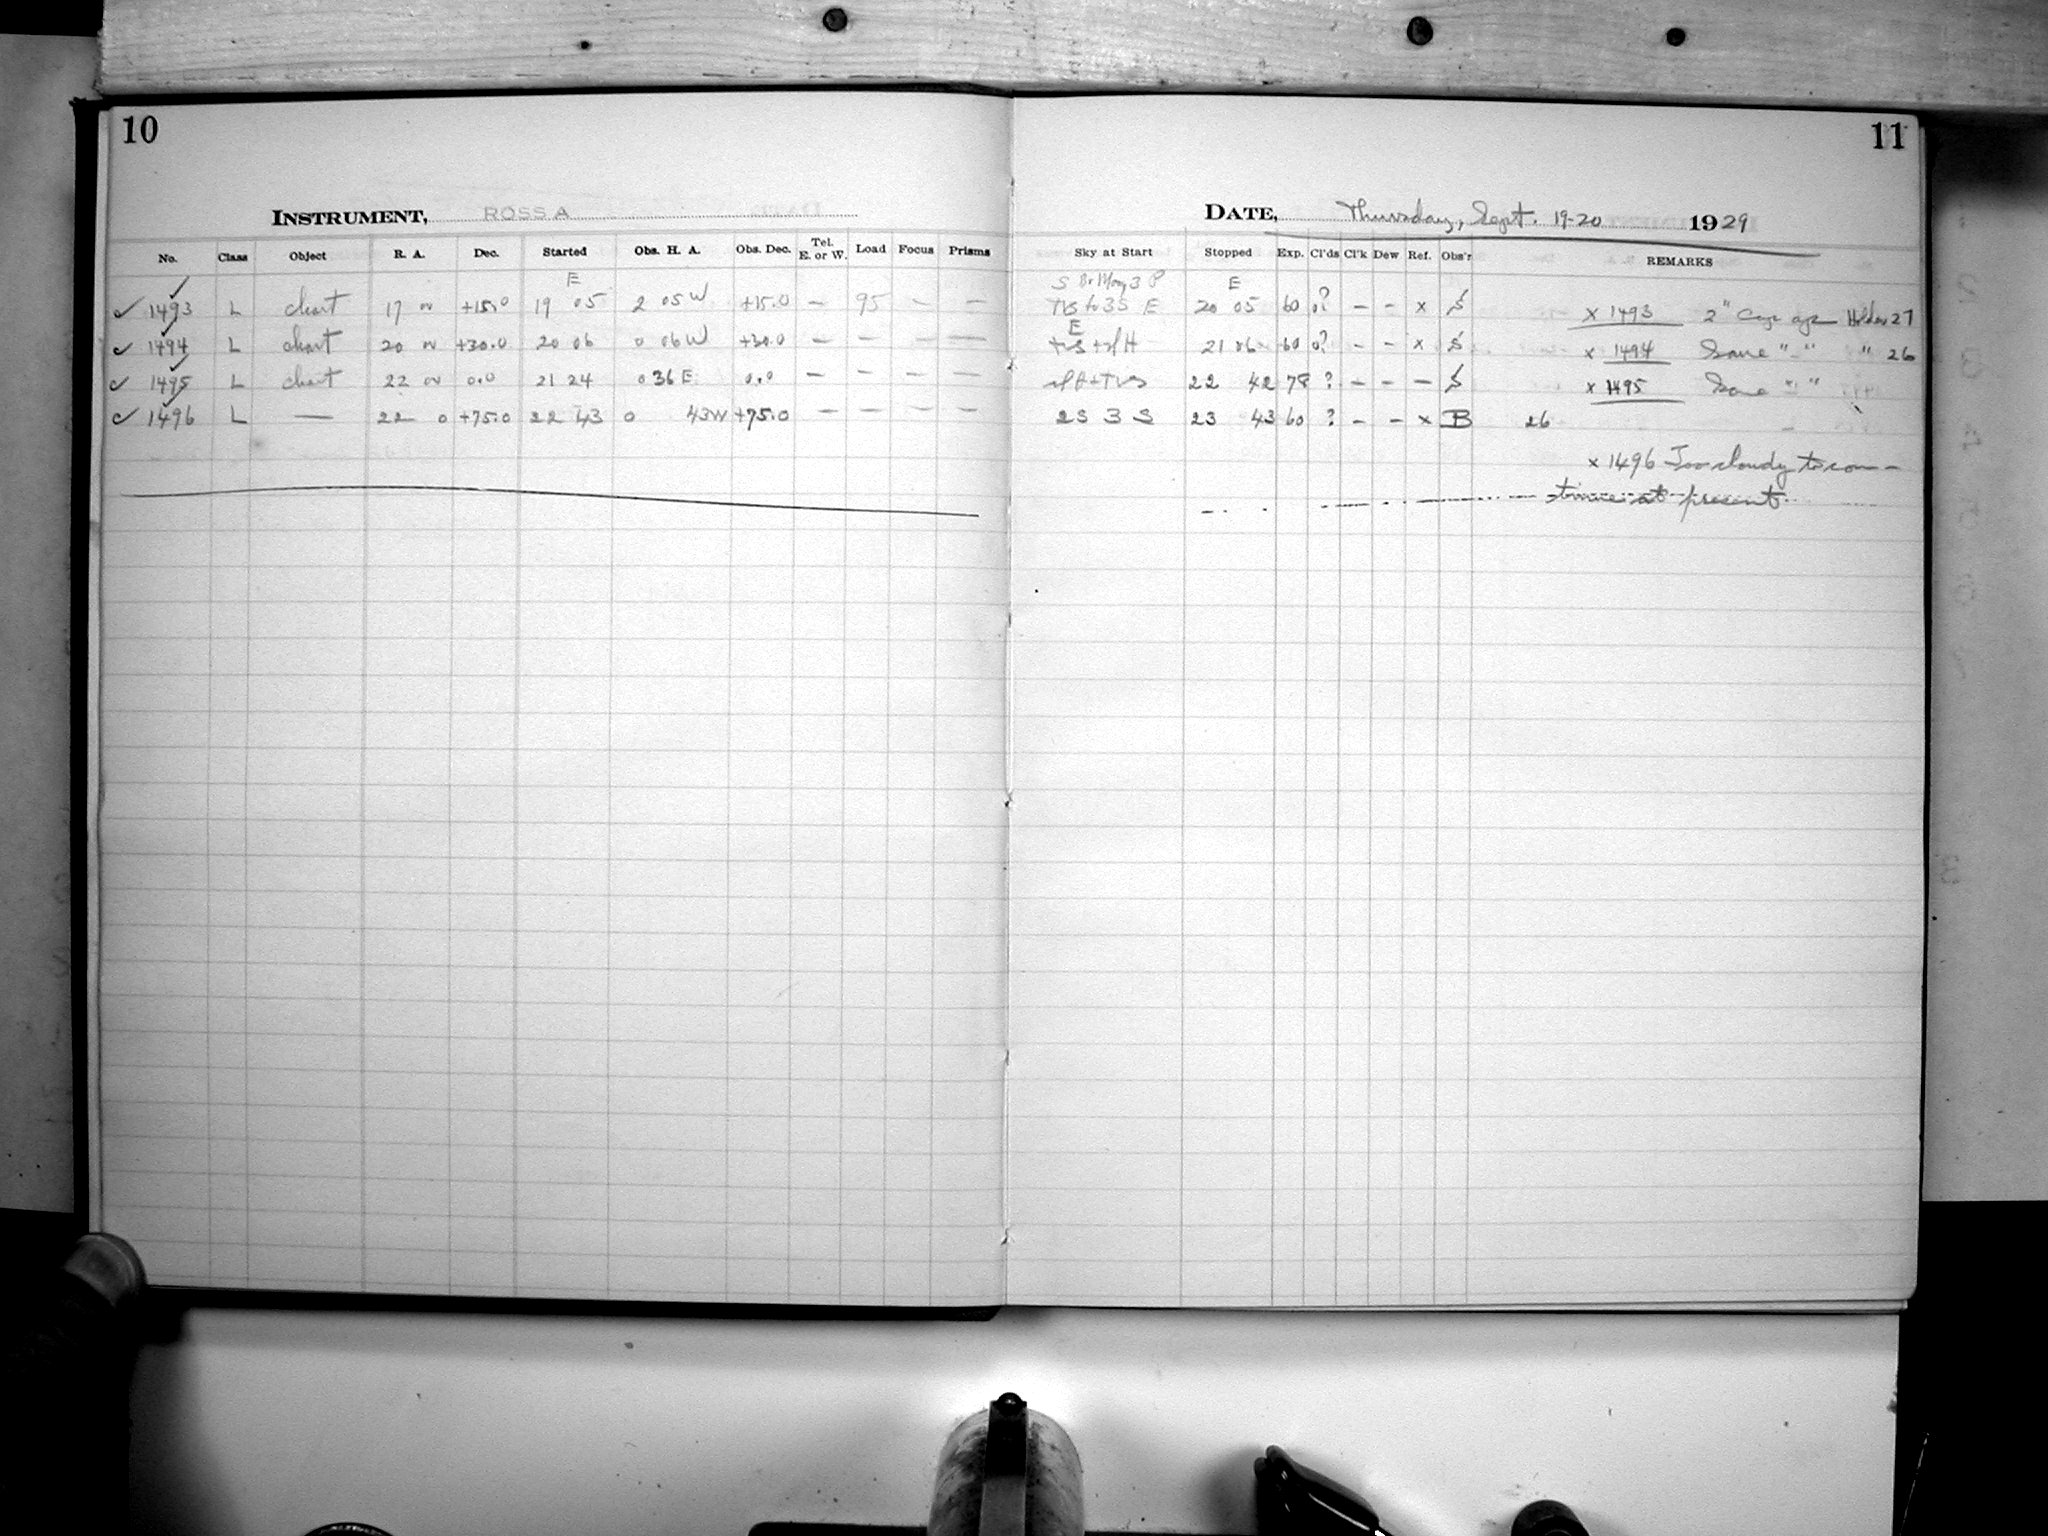 10
INSTRUMENT, ROSS A
No. Class Object R. A. Dec. Started Obs. H. A. Obs. Dec. Tel. E. or W. Load Focus Prisms
E
✓ 1493 L chart 17 +15.0 19 05 2 05 W +15.0 — 95 — —
✓ 1494 L chart 20 +30.0 20 06 0 06 W +30.0 — — — —
✓ 1495 L chart 22 0.0 21 24 0 36 E 0.0 — — — —
✓ 1496 L — 22 0 +75.0 22 43 0 43 W +75.0 — — — —
11
DATE, Thursday, Sept. 19-20 1929
Sky at Start Stopped Exp. Cl'ds Cl'k Dew Ref. Obs'r REMARKS
E
to 3S E 20 05 60 0? — — x S x 1493 2" Cap Holder 27
E
21 06 60 0? — — x S x 1494 Same " — " " 26
22 42 78 ? — — — S x 1495 Same " — "
2S 3 S 23 43 60 ? — — x B 26
x 1496 Too cloudy to con-
tinue at present